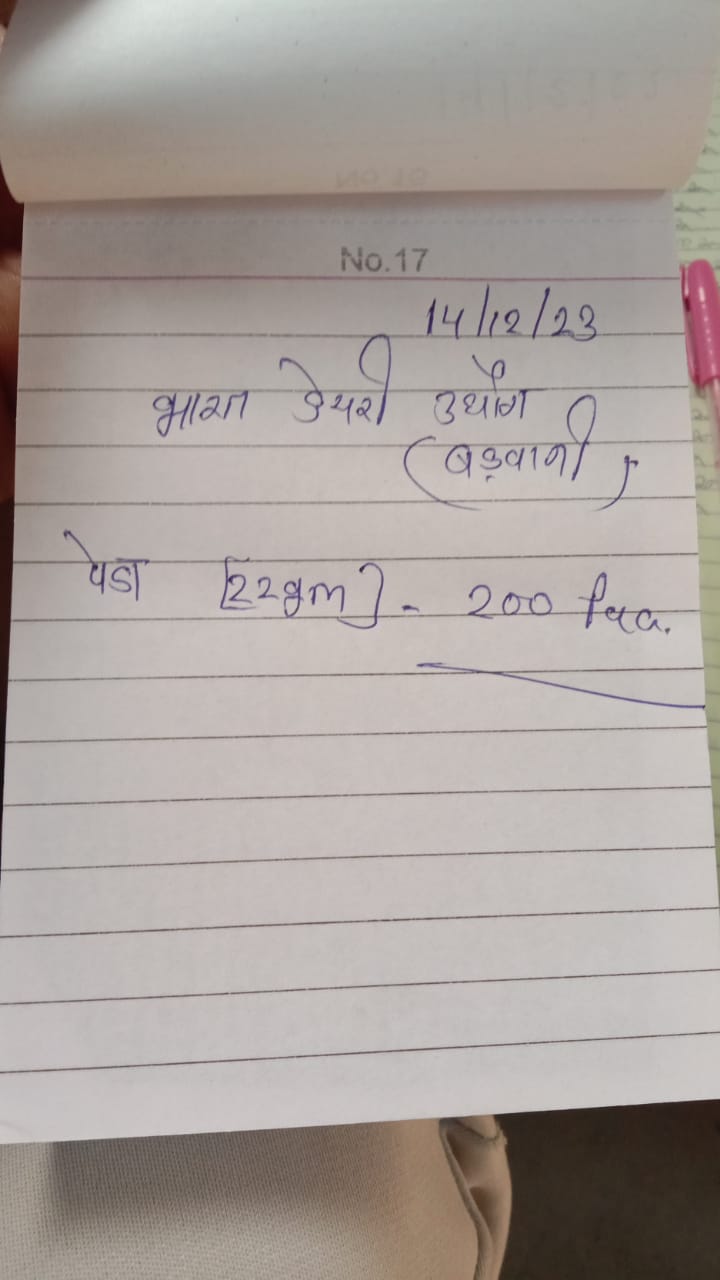 No.17
14/12/23
भारत डेयरी उधोग
(बड़वानी)
पेडा [22gm] - 200